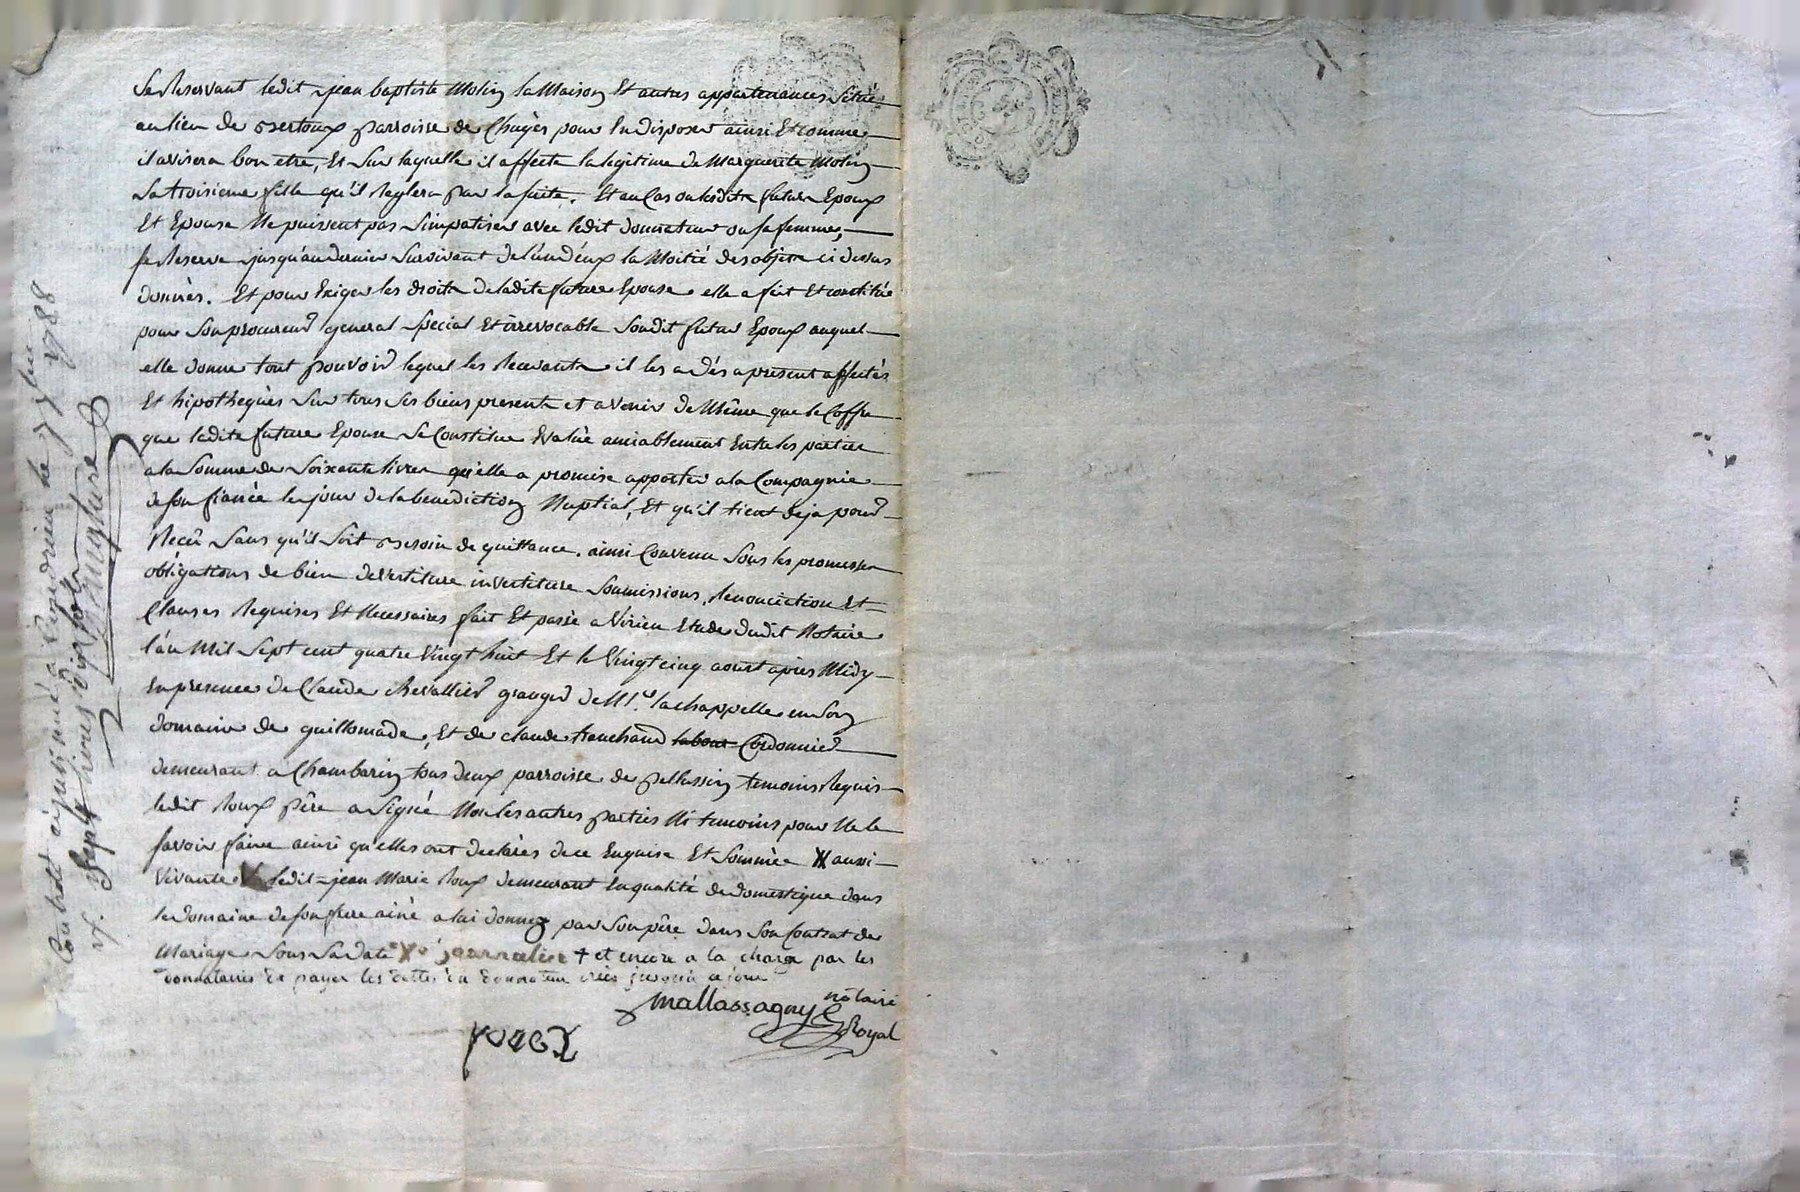 Se Reservant ledit jean baptiste Molin la Maison Et autres appartenances Situé
au lieu de parroisse de Chuyès pour En disposer ainsi Et comme
il avisera bon etre, Et Sur laquelle il affecte la legitime de Marguerite Molin
Sa troisieme fille qu'il Reglera par la suite. Et au Cas ou lesdits futurs Epoux
Et Epouse Ne puissent pas Simpatiser avec ledit donnateur ou sa femme,
se Reserve jusqu'au dernier Survivant de l'un d'eux la Moitié des objets ci dessus
donnés. Et pour Exiger les droits de ladite future Epouse elle a fait Et constitué
pour Son procureur general Special Et irrevocable Sondit futur Epoux auquel
elle donne tout pouvoir lequel les Recevants il les a dés a present affectés
Et hipothequés Sur tous Ses biens presents et avenir de Même que le Coffre
que ladite future Epouse Se Constitue Evalué amiablement Entre les parties
a la Somme de Soixante livres qu'elle a promise apporter a la Compagnie
de son fiancé le jour de la benediction Nuptial, Et qu'il tient deja pour
Recu Sans qu'il Soit Besoin de quittance. ainsi Convenu Sous les promesses
obligations de bien devestiture investiture Soumissions, Renonciation Et
Clauses Requises Et Necessaires fait Et passé a Virieu Etude dudit Notaire
l'an Mil Sept cent quatre Vingt huit Et le Vingt cinq aoust apres Midy
En presence de Claude Chevallier granger de Mr. lachappelle en Son
domaine de guillomade, Et de claude tranchand labour Cordonnier
demeurant a Chambarin tous deux parroisse de pellussin temoins Requis
ledit Roux père a Signé Non les autres parties Ni temoins pour Ne le
savoir faire ainsi qu'elles ont declarés de ce Enquise Et Sommée X aussi
Vivante ledit jean Marie Roux demeurant En qualité de domestique dans
le domaine de son frere ainé a lui donné par Son père dans Son Contrat de
Mariage Sous Sa date X journalier + et encore a la charge par les
donnataires de payer les dettes du donnateur créés jusqu'a ce jour
Mallassagny notaire
Royal
Contrat a Virieu le 7 7bre 1788
rf. Sept livres dix sols